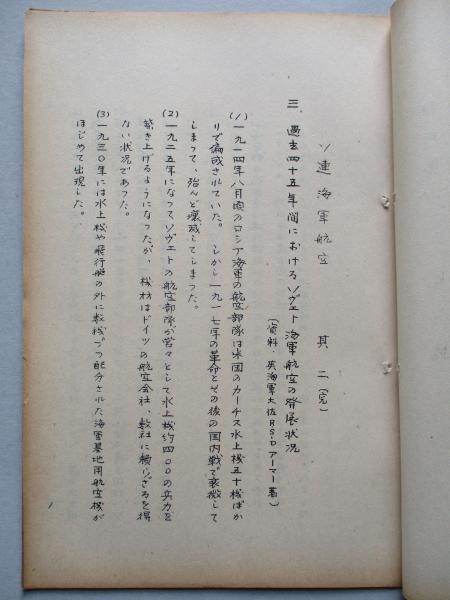 ソ連海軍航空　其二(完)
三、過去四十五年間におけるソヴェト海軍航空の発展状況
(資料・英海軍大佐RSiDアーマー著)
(1)一九一四年八月頃のロシア海軍の航空部隊は米国のカーチス水上機五十機ばか
りで編成されていた。しかし一九一七年の革命とその後の国内戦で衰微して
しまって、殆んど壊滅してしまった。
(2)一九二五年になってソヴェトの航空部隊が営々として水上機約四〇〇の兵力を
築き上げるようになったが、機材はドイツの航空会社、数社に頼らざるを得
ない状況であった。
(3)一九三〇年には水上機や飛行艇の外に数機づつ配分された海軍基地用航空機が
はじめて出現した。